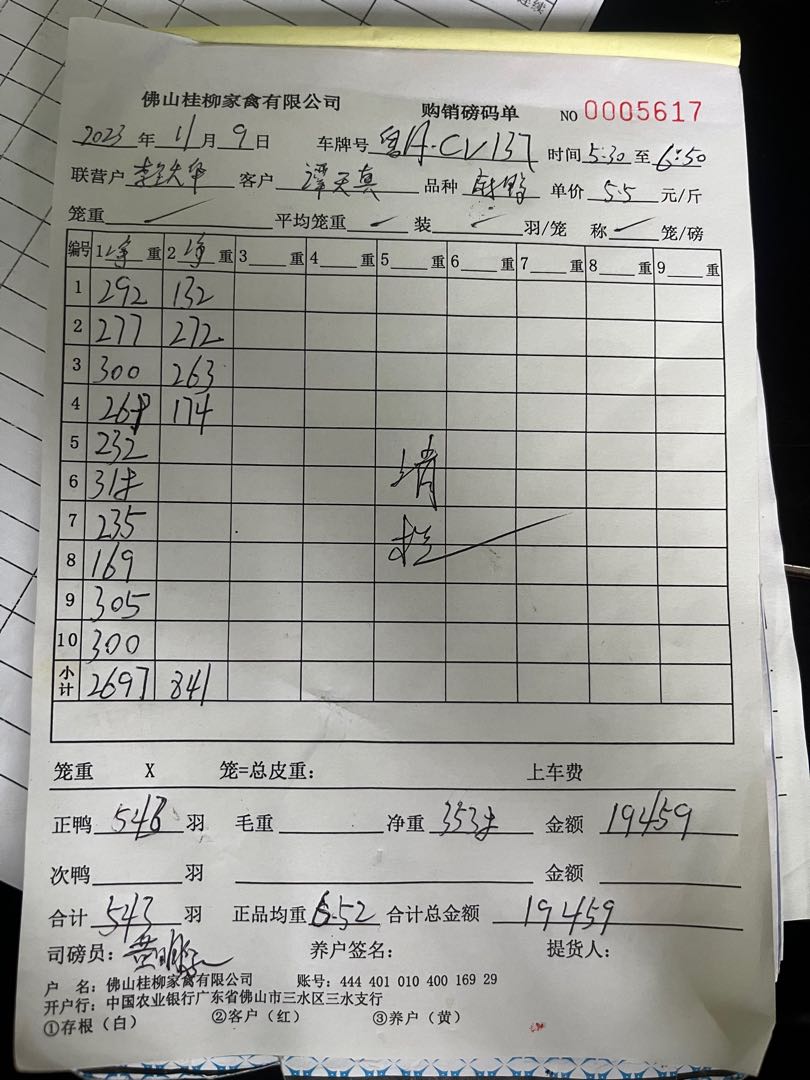 佛山桂柳家禽有限公司 购销磅码单 NO 0005617
2023 年 11 月 9 日 车牌号 粤A·CV137 时间 5:30 至 6:50
联营户 李铁华 客户 谭天真 品种 单价 5.5 元/斤
笼重 平均笼重 装 羽/笼 称 笼/磅
编号 1 净 重 2 净 重 3 重 4 重 5 重 6 重 7 重 8 重 9 重
1 292 132
2 277 272
3 300 263
4 269 174
5 232
6 318
7 235
8 169
9 305
10 300
小计 2697 841
笼重 X 笼=总皮重: 上车费
正鸭 543 羽 毛重 净重 3538 金额 19459
次鸭 羽 金额
合计 543 羽 正品均重 6.52 合计总金额 19459
司磅员: 养户签名: 提货人:
户 名: 佛山桂柳家禽有限公司 账号: 444 401 010 400 169 29
开户行: 中国农业银行广东省佛山市三水区三水支行
①存根（白） ②客户（红） ③养户（黄）